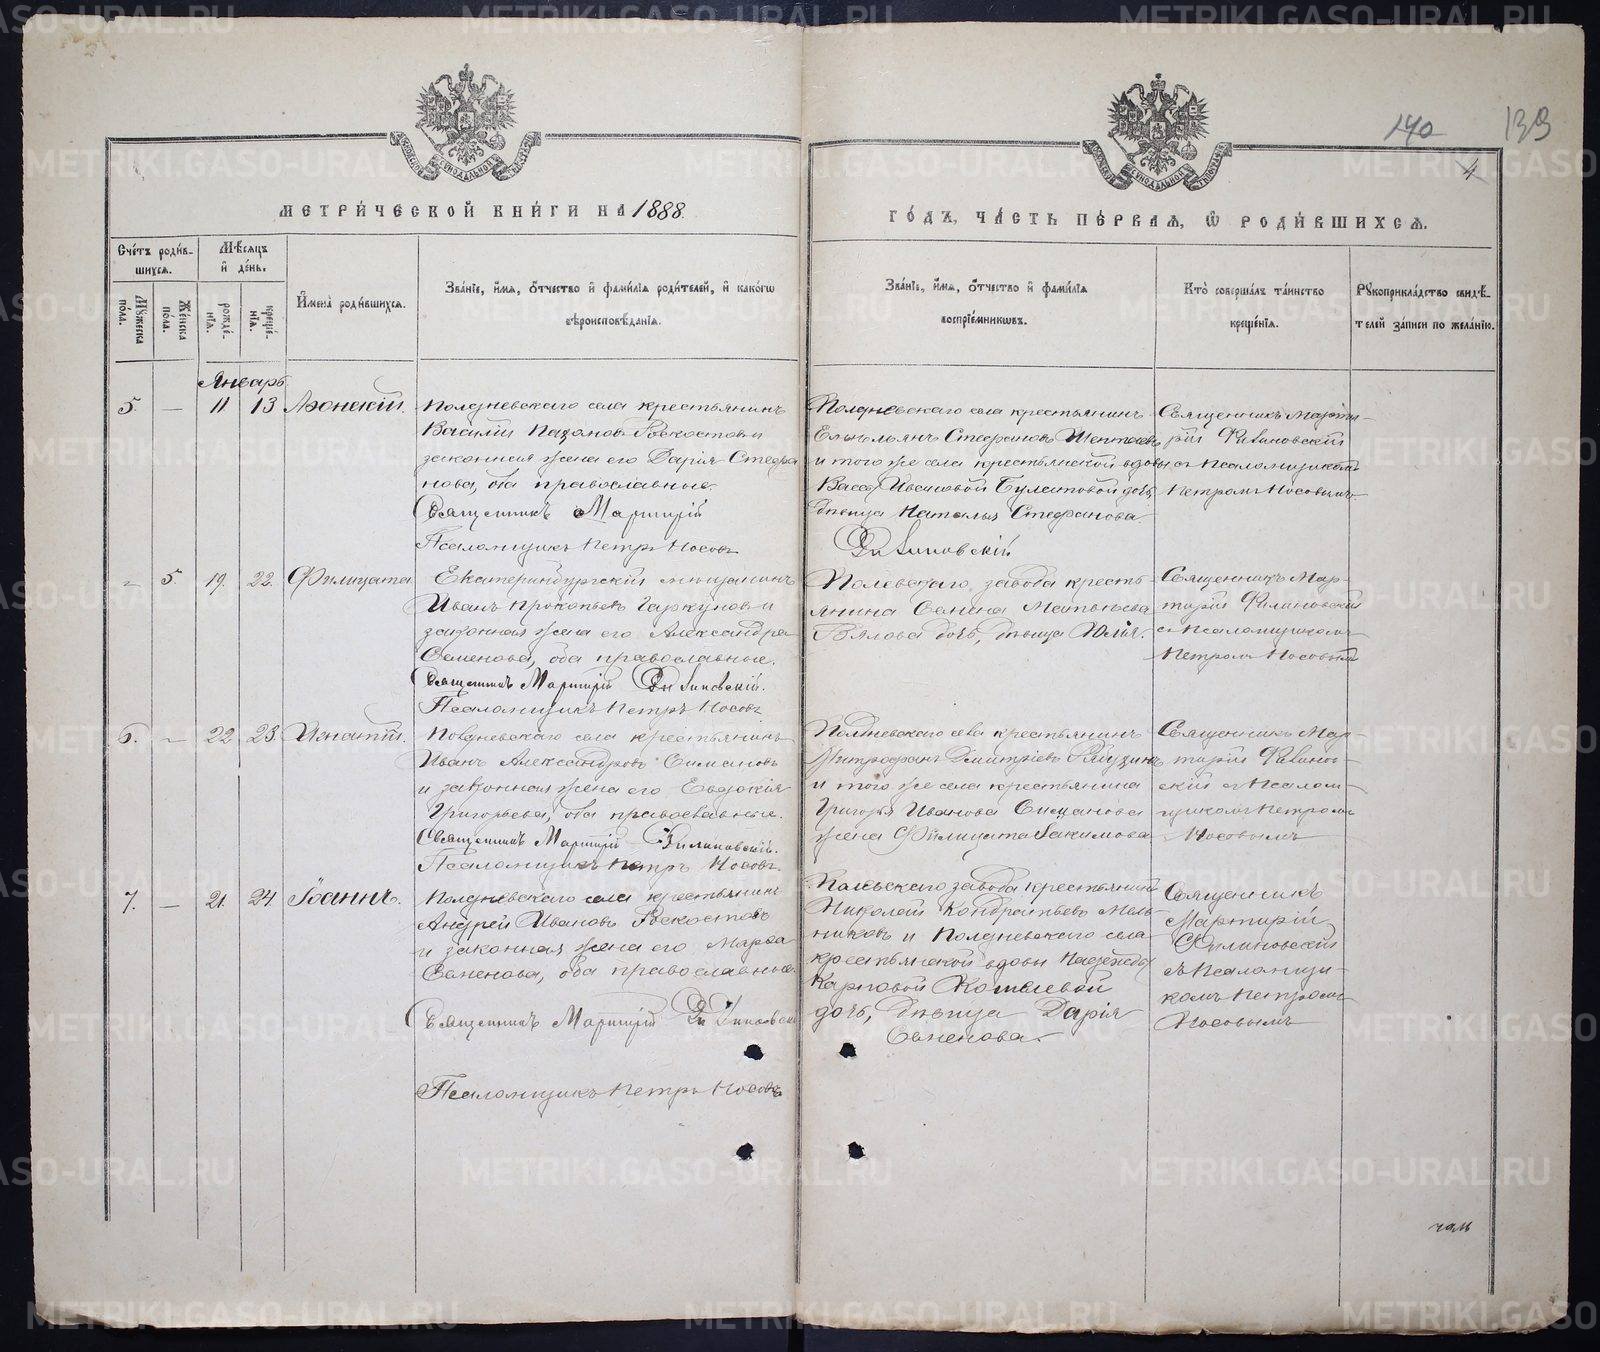 140 139
4
МЕТРИЧЕСКОЙ КНИГИ НА 1888.
ГОДЪ, ЧАСТЬ ПЕРВАЯ, Ѿ РОДИВШИХСЯ.
Счетъ родив-
шихся.
Мужеска пола.
Женска пола.
Мѣсяцъ
и день.
рожде-
нія.
креще-
нія.
Имена родившихся.
Званіе, имя, отчество и фамилія родителей, и какогѡ
вѣроисповѣданія.
Званіе, имя, отчество и фамилія
воспріемниковъ.
Кто совершалъ таинство
крещенія.
Рукоприкладство свидѣ-
телей записи по желанію.
Январь
5. — 11 13
Полдневскаго села крестьянинъ
Василій
законная жена его Дарія Стефа
нова, оба православные.
Священникъ Мартирій
Псаломщикъ Петръ Носовъ
Полдневскаго села крестьянинъ
Стефановъ
и того же села крестьянской вдовы
Вассы Ивановой Булатовой дочь,
дѣвица Наталья Стефанова.
Филиновскій
Священникъ Марти-
рій Филиновскій
съ псаломщикомъ
Петромъ Носовымъ.
- 5 19. 22. Филицата
Екатеринбургскій мѣщанинъ
Иванъ Прокопьевъ и
законная жена его Александра
Семенова, оба православные.
Священникъ Мартирій Филиновскій.
Псаломщикъ Петръ Носовъ
Полевскаго завода кресть-
янина Семена Матвѣева
дочь, дѣвица Юлія.
Священникъ Мар-
тирій Филиновскій
съ псаломщикомъ
Петромъ Носовымъ
6. — 22 23. Игнатій.
Полдневскаго села крестьянинъ
Иванъ Александровъ
и законная жена его Евдокія
Григорьева, оба православные.
Священникъ Мартирій Филиновскій.
Псаломщикъ Петръ Носовъ.
Полдневскаго села крестьянинъ
Митрофанъ Дмитріевъ
и того же села крестьянина
Григорья Иванова
жена Филицата Іакимова
Священникъ Мар-
тирій Филинов-
скій съ псалом-
щикомъ Петромъ
Носовымъ
7. — 21. 24 Іоаннъ.
Полдневскаго села крестьянинъ
Андрей Ивановъ
и законная жена его Марѳа
Семенова, оба православные.
Священникъ Мартирій Филиновскій
Псаломщикъ Петръ Носовъ
Полевскаго завода крестьянинъ
Николай Кондратьевъ Мель-
никовъ и Полдневскаго села
крестьянской вдовы Надежды
Карповой
дочь, дѣвица Дарія
Семенова.
Священникъ
Мартирій
Филиновскій
съ псаломщи-
комъ Петромъ
Носовымъ
METRIKI.GASO-URAL.RU